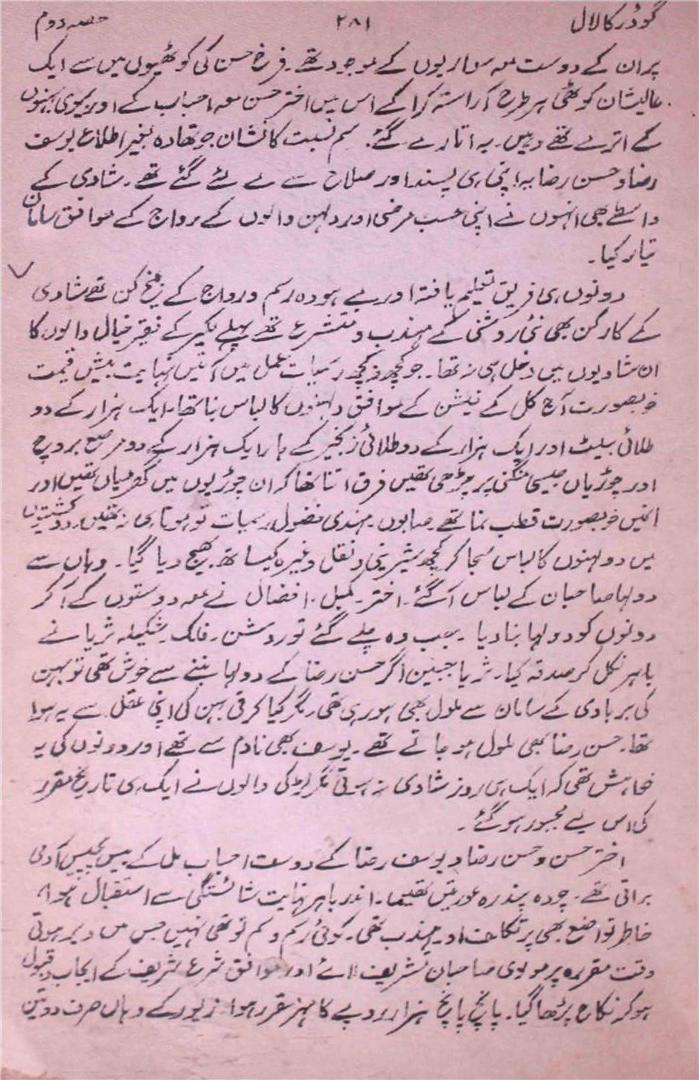 گودڑ کا لال ۲۸۱ حصہ دوم
پر ان کے دوست معہ سواریوں کے موجود تھے۔ فرخ حسن کی کوٹھیوں میں سے ایک
عالیشان کوٹھی ہر طرح آراستہ کرا کے اس میں اختر حسن معہ احباب کے اور بیوی بہنوں
کے اترے تھے وہیں۔ یہ اتارے گئے۔ سم نسبت کا نشان جو تھا وہ بغیر اطلاع یوسف
رضا و حسن رضا یہ اپنی ہی پسند اور صلاح سے لے لئے گئے تھے۔ شادی کے
واسطے بھی انہوں نے اپنی حسب مرضی اور دلہن والوں کے رواج کے موافق سامان
تیار کیا۔
دونوں ہی فریق تعلیم یافتہ اور بے ہودہ رسم و رواج کے بیخ کن تھے شادی
کے کارکن بھی نئی روشنی کے مہذب و متشرع تھے پہلے لکیر کے فقیر خیال والوں کا
ان شادیوں میں دخل ہی نہ تھا۔ جو کچھ نہ کچھ رسمیات عمل میں آتیں نہایت بیش قیمت
خوبصورت آج کل کے فیشن کے موافق دلہنوں کا لباس بنا تھا۔ ایک ہزار کے دو
طلائی بیلٹ اور ایک ہزار کے دو طلائی زنجیر کے ہار ایک ہزار کے دو مرصع بروچ
اور چوڑیاں جیسی منگنی پر چڑھی تھیں فرق اتنا تھا کہ ان جوڑیوں میں گھڑیاں تھیں اور
انیں خوبصورت قطب نما تھے۔ صابوں۔ مہندی فضول رسمیات تو ہوتا ہی نہ تھیں۔ دو کشتیوں
میں دولہنوں کا لباس سجا کر کچھ شیرینی و نقل وغیرہ کیساتھ بھیج دیا گیا۔ وہاں سے
دولہا صاحبان کے لباس آگئے۔ اختر۔ کمبل۔ افضال نے معہ دوستوں کے آ کر
دونوں کو دولہا بنا دیا۔ جب وہ چلے گئے تو روشن۔ فلک۔ شکیلہ ثریا نے
باہر نکل کر صدقہ کیا۔ ثریا جبین اگر حسن رضا کے دولہا بننے سے خوش تھی تو بہن
کی بربادی کے سامان سے ملول بھی ہو رہی تھی۔ مگر کیا کرتی بہن کی اپنی عقل سے یہ ہوا
تھا۔ حسن رضا بھی ملول ہو جاتے تھے۔ یوسف بھی نادم سے تھے اور دونوں کی یہ
خواہش تھی کہ ایک ہی روز شادی نہ ہوتی مگر لڑکی والوں نے ایک ہی تاریخ مقرر
کی اس لیے مجبور ہو گئے۔
اختر حسن و حسن رضا و یوسف رضا کے دوست احباب مل کے بیس پچیس آدمی
براتی تھے۔ چودہ پندرہ عورتیں تھیں۔ اندر باہر نہایت شائستگی سے استقبال ہوا
خاطر تواضع بھی پر تکلف اور مہذب تھی۔ کوئی رسم وسم تو تھی نہیں جس میں دیر ہوتی
وقت مقررہ پر مولوی صاحبان تشریف لائے اور موافق شرع شریف کے ایجاب و قبول
ہو کر نکاح پڑھا گیا۔ پانچ پانچ ہزار روپے کا مہر مقرر ہوا۔ زیور کے وہاں صرف دو تین